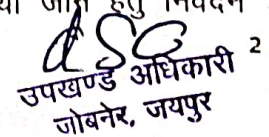 जाने हेतु निवेदन
2
उपखण्ड अधिकारी
जोबनेर, जयपुर